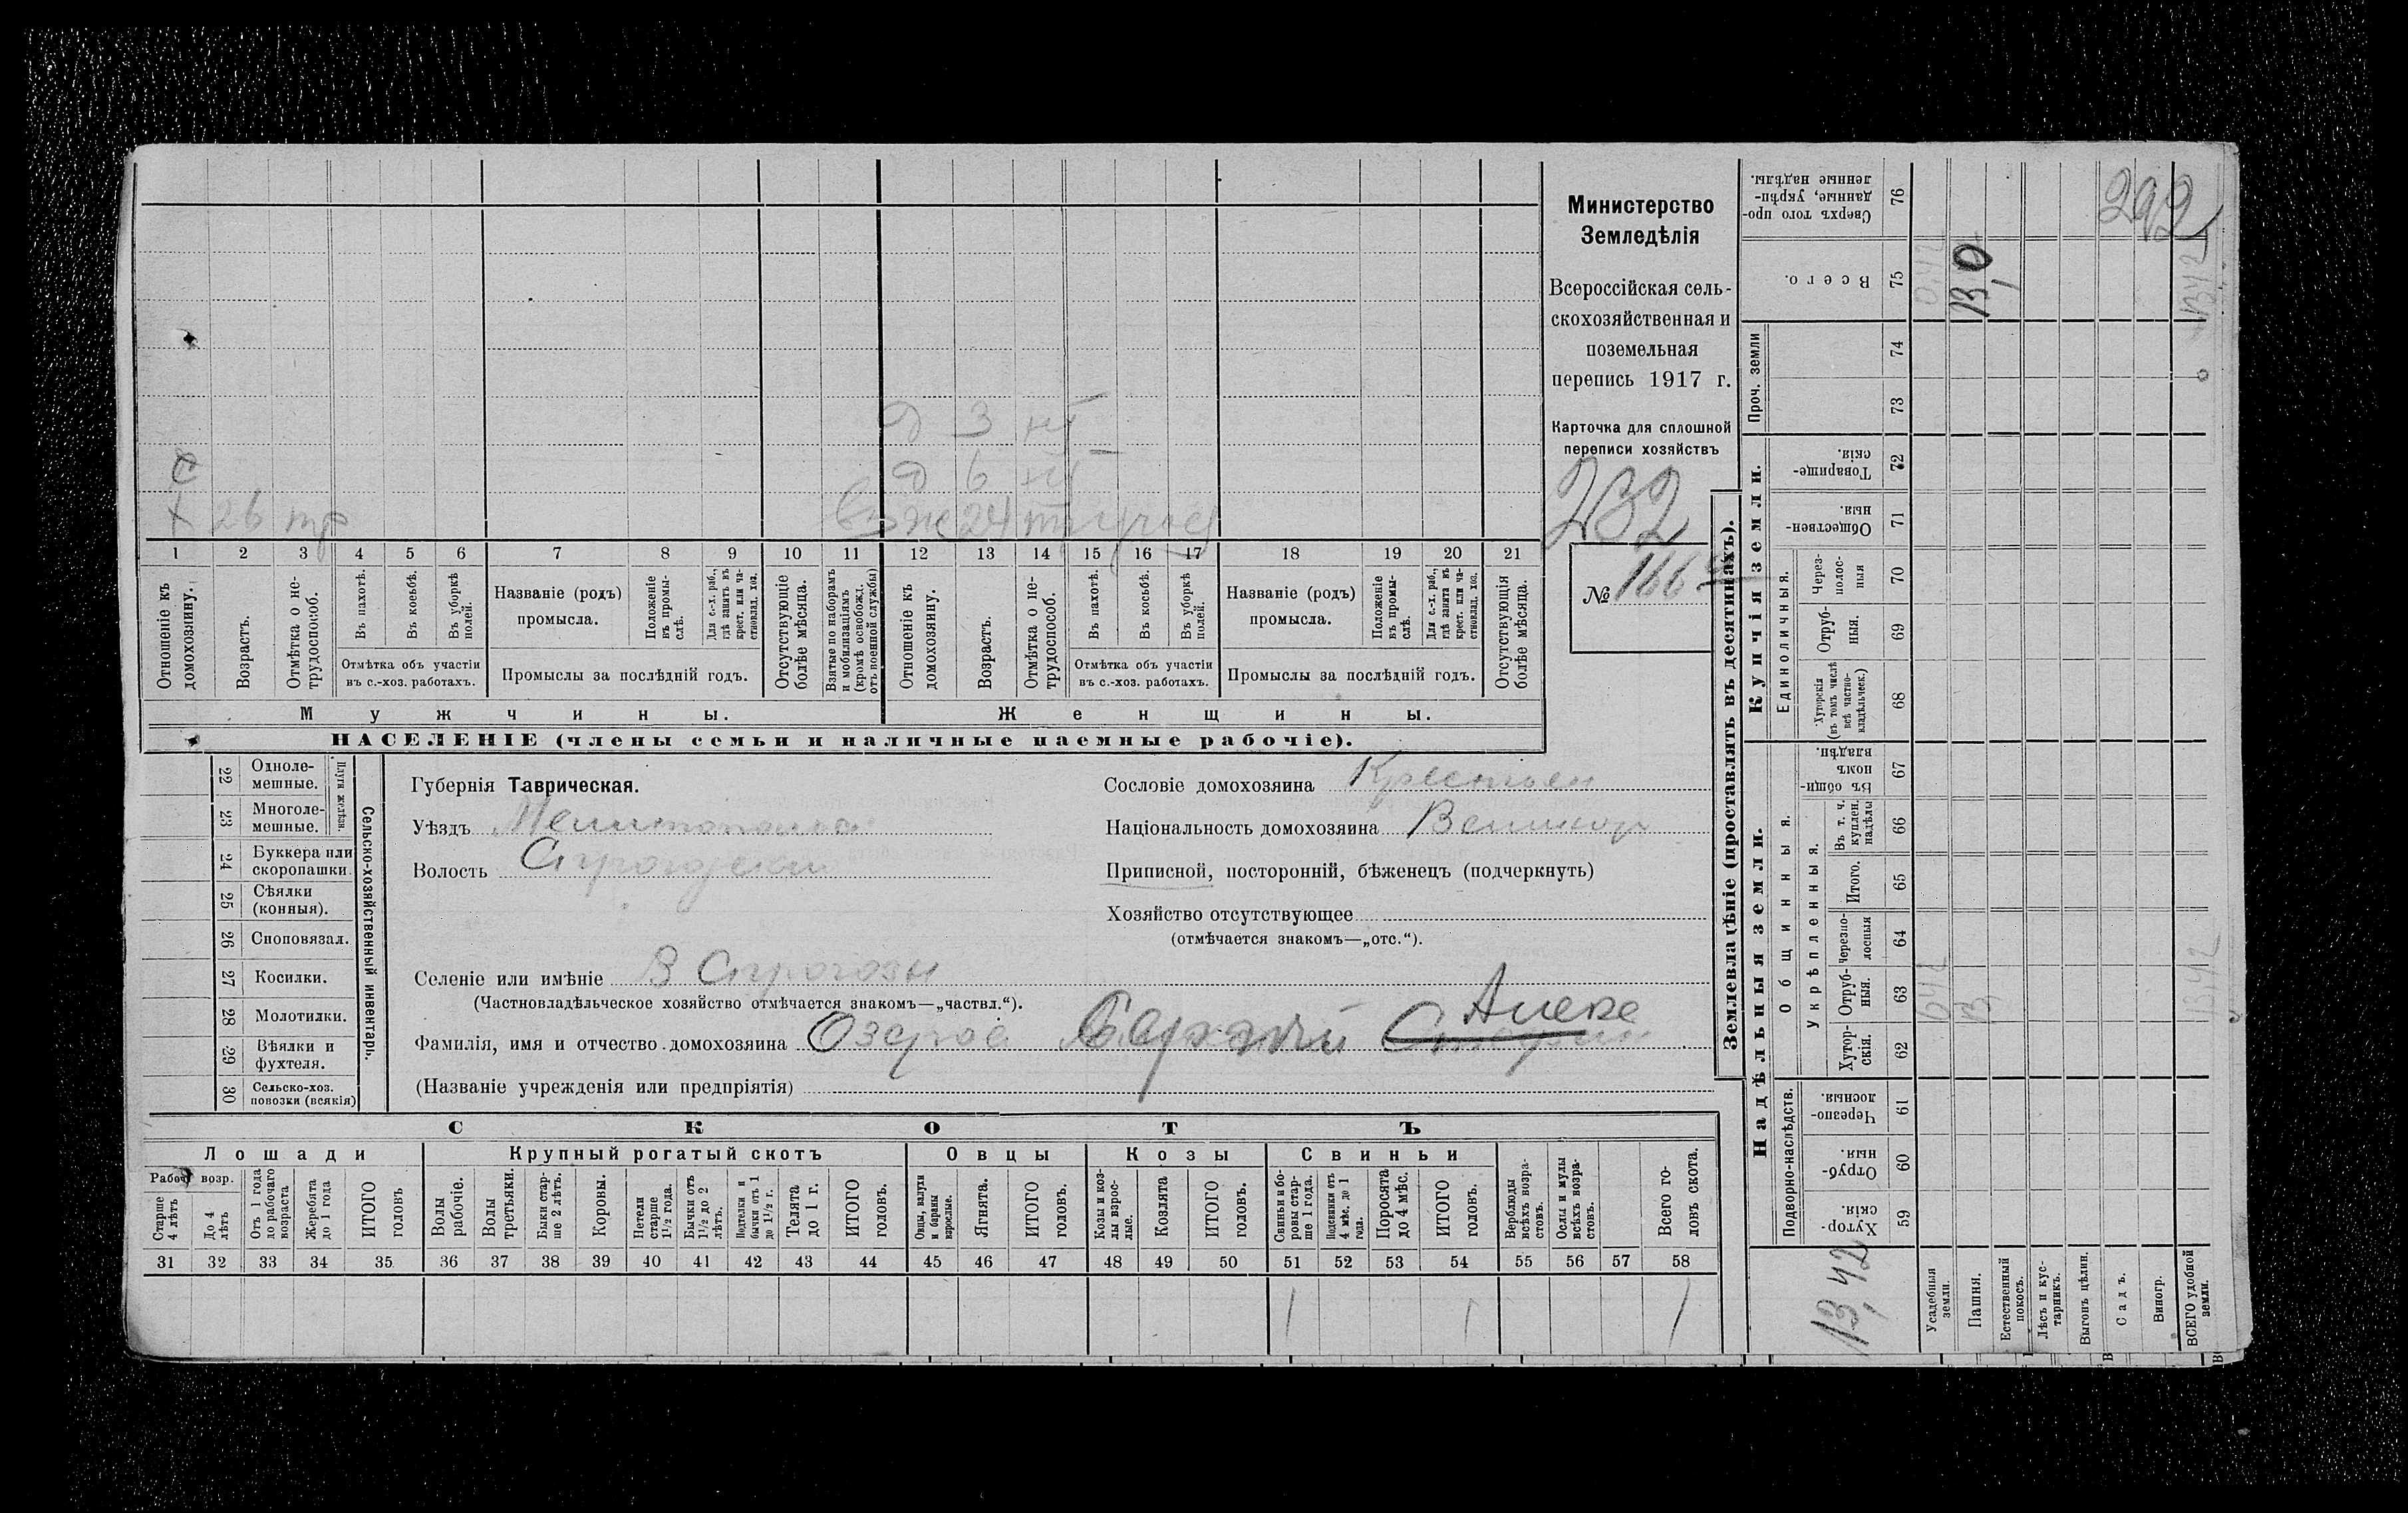 Министерство
Земледѣлія
Всероссійская сель-
скохозяйственная и
поземельная
перепись 1917 г.
Карточка для сплошной
переписи хозяйствъ
232
№ 166
д 3 нт
д 6 нт
х 26 тр
1 2 3 4 5 6 7 8 9 10 11 12 13 14 15 16 17 18 19 20 21
Отношеніе къ домохозяину.
Возрастъ.
Отмѣтка о не-трудоспособ.
Въ пахотѣ.
Въ косьбѣ.
Въ уборкѣ полей.
Отмѣтка объ участіи
въ с.-хоз. работахъ.
Названіе (родъ)
промысла.
Положеніе въ промы-слѣ.
Для с.-х. раб., гдѣ занятъ въ крест. или ча-стновлад. хоз.
Промыслы за послѣдній годъ.
Отсутствующіе болѣе мѣсяца.
Взятые по наборамъ и мобилизаціямъ (кромѣ освобожд. отъ военной службы)
Отношеніе къ домохозяину.
Возрастъ.
Отмѣтка о не-трудоспособ.
Въ пахотѣ.
Въ косьбѣ.
Въ уборкѣ полей.
Отмѣтка объ участіи
въ с.-хоз. работахъ.
Названіе (родъ)
промысла.
Положеніе въ промы-слѣ.
Для с.-х. раб., гдѣ занята въ крест. или ча-стновлад. хоз.
Промыслы за послѣдній годъ.
Отсутствующія болѣе мѣсяца.
Мужчины.
Женщины.
НАСЕЛЕНІЕ (члены семьи и наличные наемные рабочіе).
22 Одноле-мешные.
23 Многоле-мешные.
Плуги желѣзн.
24 Буккера или скоропашки.
25 Сѣялки (конныя).
26 Сноповязал.
27 Косилки.
28 Молотилки.
29 Вѣялки и фухтеля.
30 Сельско-хоз. повозки (всякія)
Сельско-хозяйственный инвентарь.
Губернія Таврическая.
Уѣздъ
Волость
Селеніе или имѣніе
(Частновладѣльческое хозяйство отмѣчается знакомъ—„частвл.“).
Фамилія, имя и отчество домохозяина
(Названіе учрежденія или предпріятія)
Сословіе домохозяина Крестьян
Національность домохозяина Великор
Приписной, посторонній, бѣженецъ (подчеркнуть)
Хозяйство отсутствующее
(отмѣчается знакомъ—„отс.“).
СКОТЪ
Лошади
Рабоч возр.
Старше 4 лѣтъ
До 4 лѣтъ
Отъ 1 года до рабочаго возраста
Жеребята до 1 года
ИТОГО головъ
Крупный рогатый скотъ
Волы рабочіе.
Волы третьяки.
Быки стар-ше 2 лѣтъ.
Коровы.
Нетели старше 1½ года.
Бычки отъ 1½ до 2 лѣтъ.
Подтелки и бычки отъ 1 до 1½ г.
Телята до 1 г.
ИТОГО головъ.
Овцы
Овцы, валухи и бараны взрослые.
Ягнята.
ИТОГО головъ.
Козы
Козы и коз-лы взрос-лые.
Козлята
ИТОГО головъ.
Свиньи
Свиньи и бо-ровы стар-ше 1 года.
Подсвинки отъ 4 мѣс. до 1 года.
Поросята до 4 мѣс.
ИТОГО головъ.
Верблюды всѣхъ возра-стовъ.
Ослы и мулы всѣхъ возра-стовъ.
Всего го-ловъ скота.
31 32 33 34 35 36 37 38 39 40 41 42 43 44 45 46 47 48 49 50 51 52 53 54 55 56 57 58
1 1 1
Землевладѣніе (проставлять въ десятинахъ).
Надѣльныя земли.
Подворно-наслѣдств.
Хутор-скія. 59
Отруб-ныя. 60
Черезпо-лосныя. 61
Общинныя.
Укрѣпленныя.
Хутор-скія. 62
Отруб-ныя. 63
Черезпо-лосныя 64
Итого. 65
Въ т. ч. куплен. надѣлы 66
Въ общи-номъ владѣн. 67
Купчія земли.
Единоличныя.
Хуторскія (въ томъ числѣ всѣ частно-владѣльческ.) 68
Отруб-ныя. 69
Через-полос-ныя 70
Обществен-ныя. 71
Товарище-скія. 72
Проч. земли
73 74
Всего. 75
Сверхъ того про-данные, укрѣп-ленные надѣлы. 76
13,42
Усадебныя земли. 0,42 0,42
Пашня. 13 13,0
Естественный покосъ.
Лѣсъ и кус-тарникъ.
Выгонъ цѣлин.
Садъ.
Виногр.
ВСЕГО удобной земли. 13,42 13,42
292